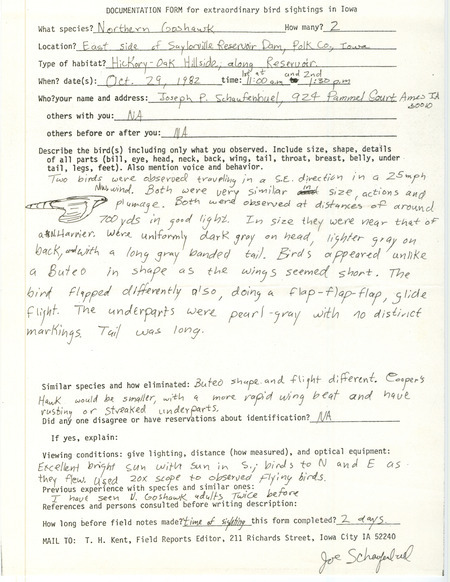 DOCUMENTATION FORM for extraordinary bird sightings in Iowa
What species? Northern Goshawk How many? 2
Location? East side of Saylorville Reservoir Dam, Polk Co, Iowa
Type of habitat? Hickory-Oak Hillside, along Reservoir.
When? date(s): Oct. 29, 1982 time: 1st at 11:00 am and 2nd 1:30 pm
Who? your name and address: Joseph P. Schaufenbuel, 924 Pammel Court Ames IA 50010
others with you: NA
others before or after you: NA
Describe the bird(s) including only what you observed. Include size, shape, details
of all parts (bill, eye, head, neck, back, wing, tail, throat, breast, belly, under
tail, legs, feet). Also mention voice and behavior.
Two birds were observed traveling in a S.E. direction in a 25 mph
NW wind. Both were very similar in size, actions and
plumage. Both were observed at distances of around
700 yds in good light. In size they were near that of
a N Harrier. Were uniformly dark gray on head, lighter gray on
back, and with a long gray banded tail. Birds appeared unlike
a Buteo in shape as the wings seemed short. The
bird flapped differently also, doing a flap-flap-flap, glide
flight. The underparts were pearl-gray with no distinct
markings. Tail was long.
Similar species and how eliminated: Buteo shape and flight different. Cooper's
Hawk would be smaller, with a more rapid wing beat and have
rusting or streaked underparts.
Did any one disagree or have reservations about identification? NA
If yes, explain:
Viewing conditions: give lighting, distance (how measured), and optical equipment:
Excellent bright sun with sun in S.; birds to N and E as
they flew. Used 20x scope to observed flying birds.
Previous experience with species and similar ones:
I have seen N. Goshawk adults twice before
References and persons consulted before writing description:
How long before field notes made? time of sighting this form completed? 2 days
MAIL TO: T. H. Kent, Field Reports Editor, 211 Richards Street, Iowa City IA 52240
Joe Schaufenbuel